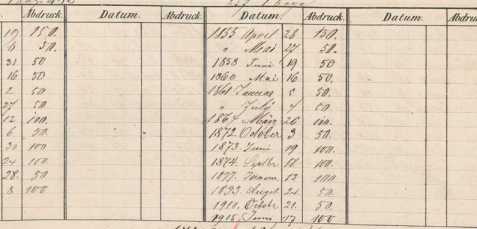 Abdruck. Datum. Abdruck. Datum. Abdruck. Datum. Abdruck
19 150. 1855 April 28 150.
6 50. " Mai 27 50.
31 50 1858 Juni 19 50
16 50 1860 Mai 16 50.
2 50 1861 Januar 50.
27 50 " July 7 50.
12 100. 1867 März 26 100.
6 50. 1872. October 3 50.
30 100 1873. Juni 19 100.
24 100 1874. 18 100.
28. 50 1877. 12 100
8 100 August 21. 50.
1910. Octobr 21. 50
1915. Juni 17 100